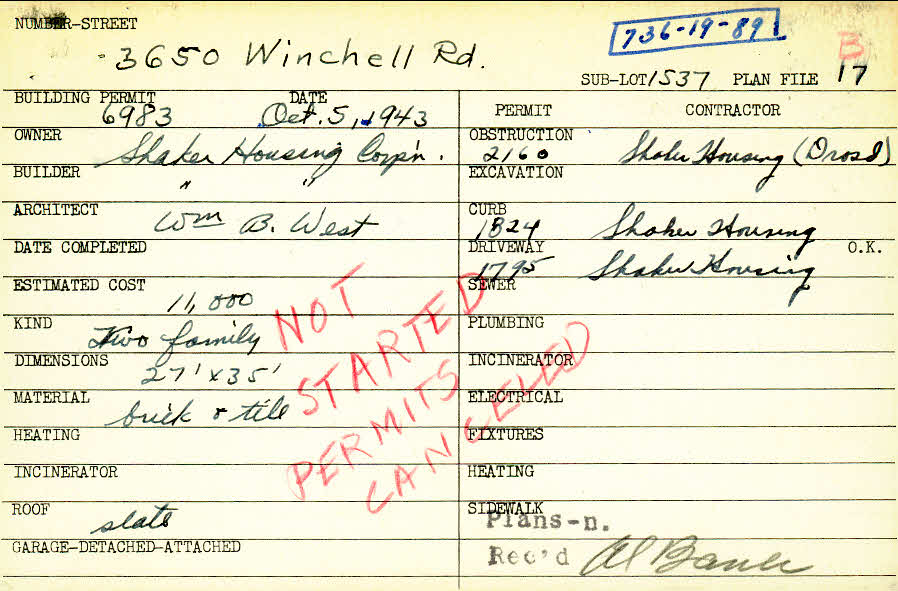 NUMBER-STREET
3650 Winchell Rd.
736-19-89
B
SUB-LOT 1537 PLAN FILE 17
BUILDING PERMIT DATE
6983 Oct. 5, 1943
OWNER
Shaker Housing Corp'n.
BUILDER
" "
ARCHITECT
Wm B. West
DATE COMPLETED
ESTIMATED COST
11,000
KIND
Two family
DIMENSIONS
27' x 35'
MATERIAL
brick & tile
HEATING
INCINERATOR
ROOF
slate
GARAGE-DETACHED-ATTACHED
NOT
STARTED
PERMITS
CANCELED
PERMIT CONTRACTOR
OBSTRUCTION
2160 Shaker Housing (Drosd)
EXCAVATION
CURB
1824 Shaker Housing
DRIVEWAY O.K.
1795 Shaker Housing
SEWER
PLUMBING
INCINERATOR
ELECTRICAL
FIXTURES
HEATING
SIDEWALK
Plans-n.
Rec'd Al Bauer